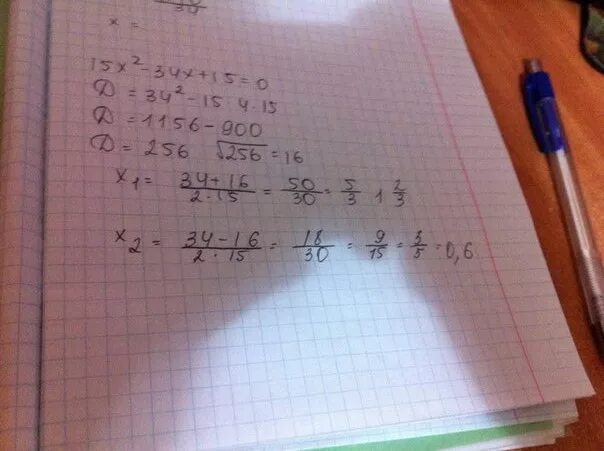 30
x =
15x² - 34x + 15 = 0
D = 34² - 15 · 4 · 15
D = 1156 - 900
D = 256 √256 = 16
x₁ = (34 + 16)/(2 · 15) = 50/30 = 5/3 1 2/3
x₂ = (34 - 16)/(2 · 15) = 18/30 = 9/15 = 3/5 = 0,6